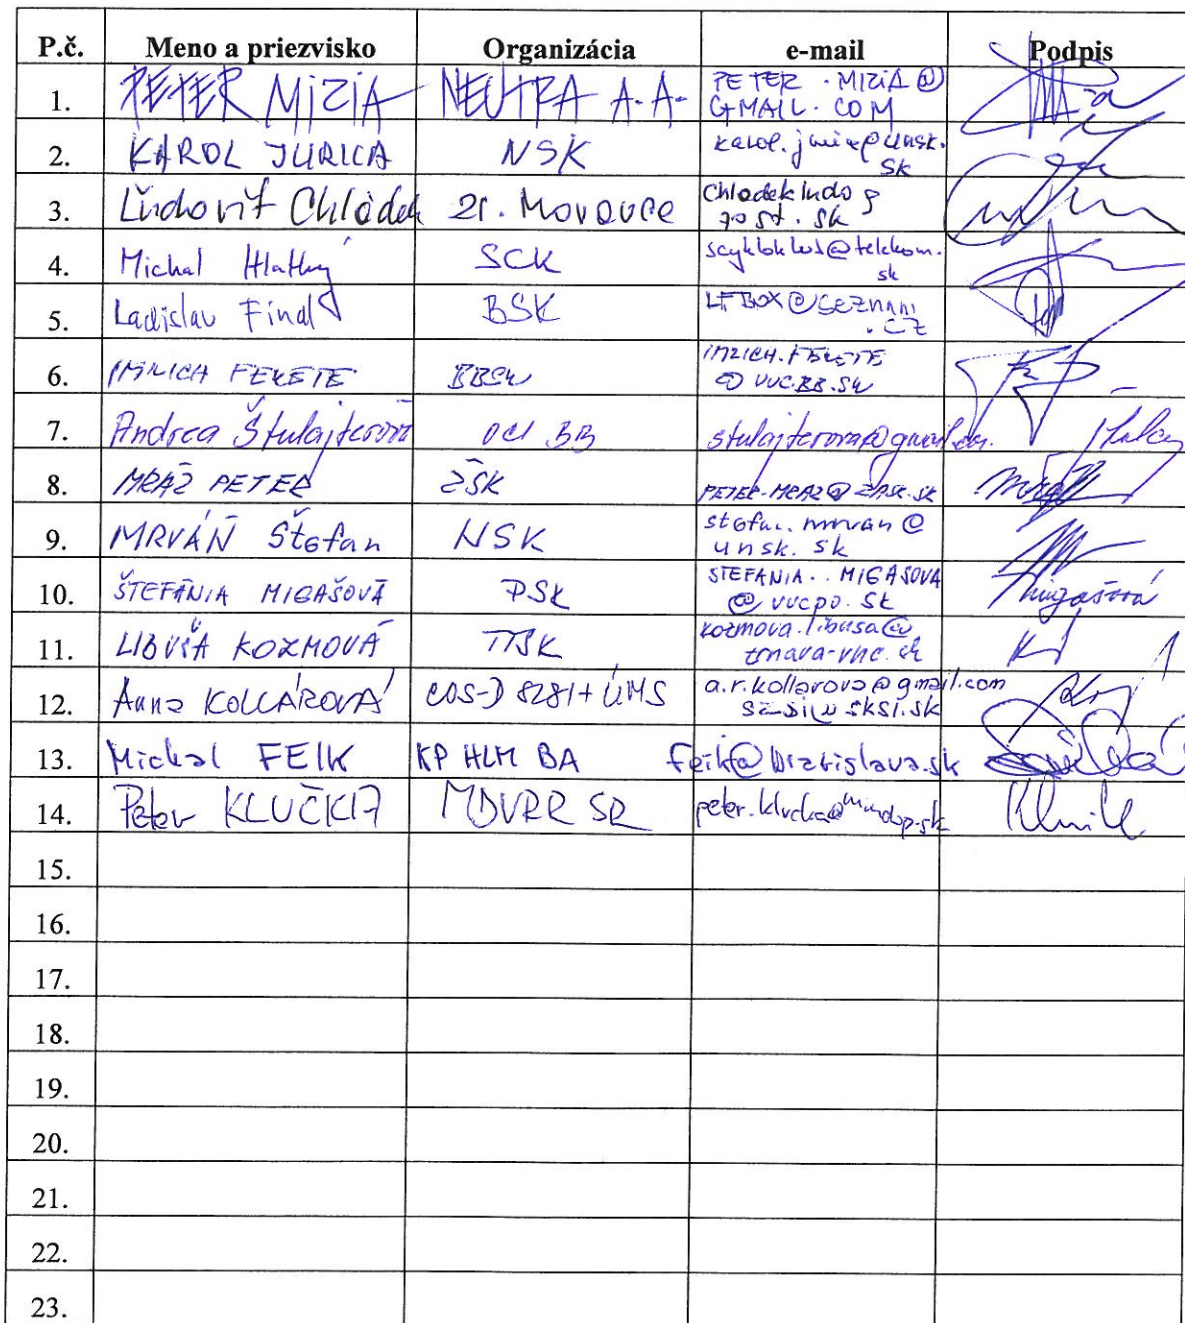 P.č. Meno a priezvisko Organizácia e-mail Podpis
1. PETER MIZIA NEUTRA A.A. PETER.MIZIA@
GMAIL.COM
2. KAROL JURICA NSK @unsk.
sk
3. Ľudovít Chládek Zl. Moravce
post.sk
4. Michal Hlatký SCK @telekom.
sk
5. Ladislav Findl BSK LFBOX@SEZNAM
.CZ
6. IMRICH FEKETE BBSK IMRICH.FEKETE
@VUCBB.SK
7. Andrea Štulajterová OCI BB stulajterova@gmail.com
8. MRÁZ PETER ŽSK PETER.MRAZ@ZASK.SK
9. MRVÁŇ Štefan NSK stefan.mrvan@
unsk.sk
10. ŠTEFÁNIA MIGAŠOVÁ PSK STEFANIA.MIGASOVA
@vucpo.sk Migašová
11. LIBUŠA KOZMOVÁ TTSK kozmova.libusa@
trnava-vuc.sk
12. Anna KOLLÁROVÁ a.r.kollarova@gmail.com
sksi.sk
13. Michal FEIK KP HLM BA feik@bratislava.sk
14. Peter KLUČKA MDVRR SR peter.klucka@mindop.sk
15.
16.
17.
18.
19.
20.
21.
22.
23.